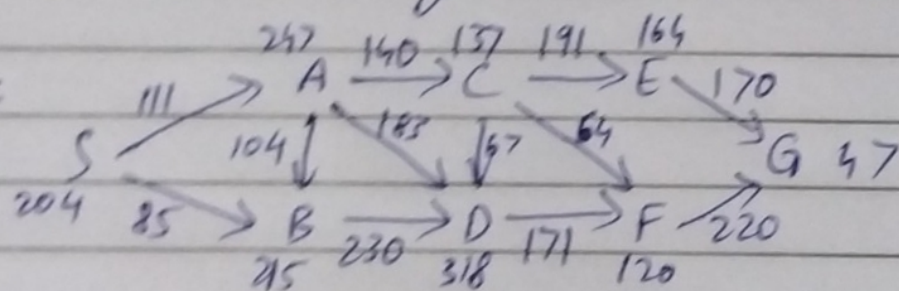 247 140 137 191 164
A C E 170
111
S 104 183 57 64 G 47
204 85 B 230 D 171 F 220
318 120